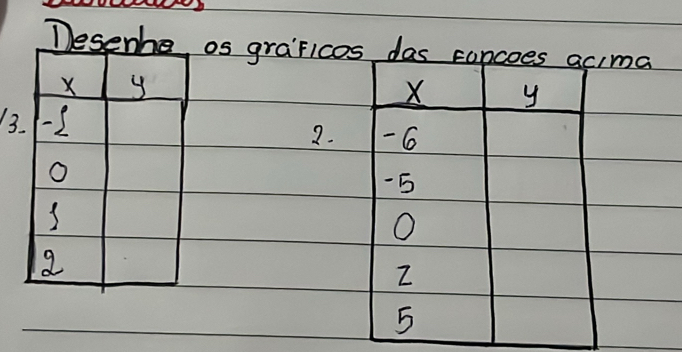 Desenhe os gráficos das funcoes acima
x y
x y
13. -1
0
1
2
2. -6
-5
0
2
5